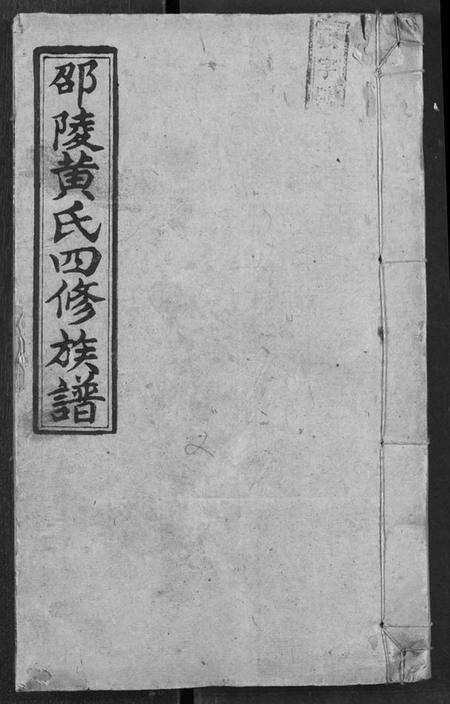 邵陵黄氏四修族譜
2